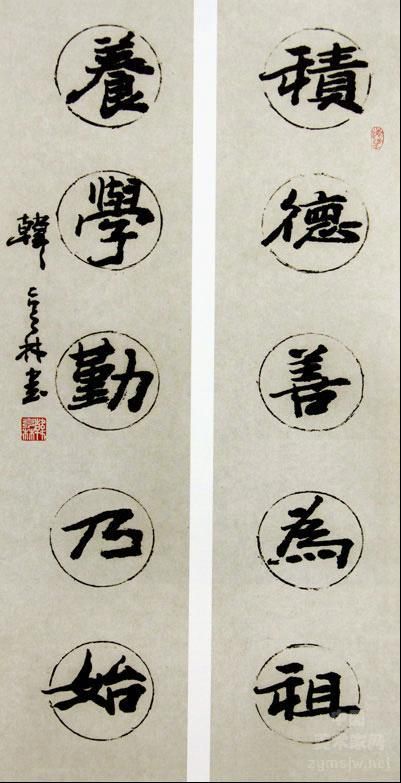 積德善為祖
養學勤乃始
韓言林书
zgmsjw.net